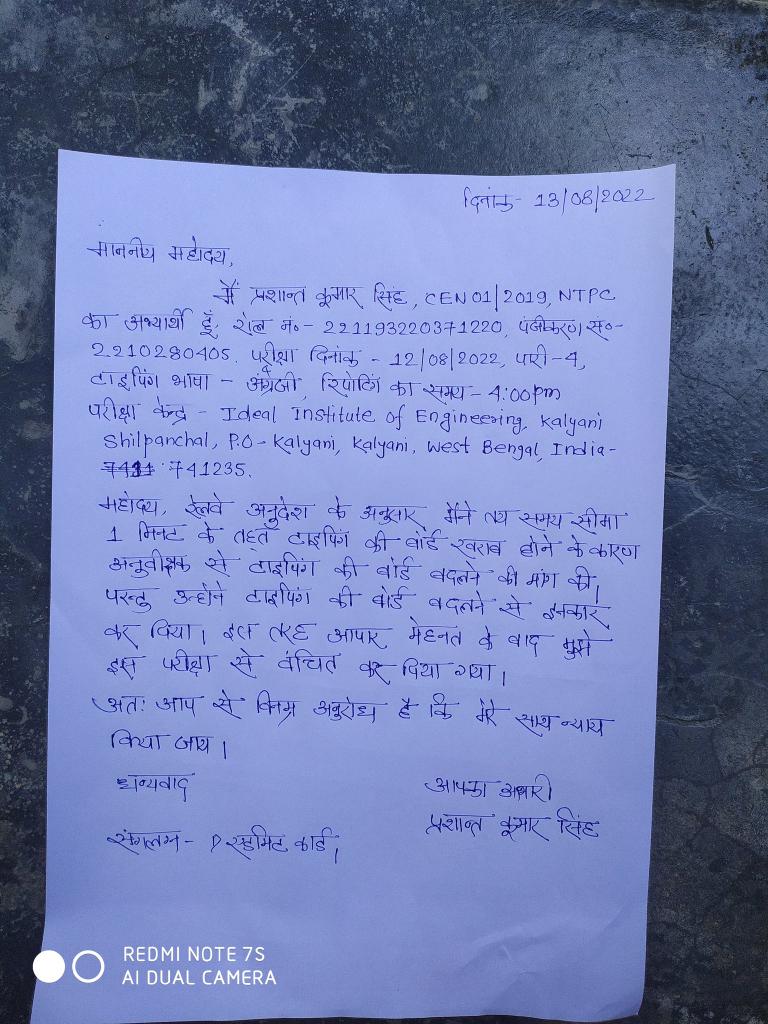 दिनांक- 13/08/2022
माननीय महोदय,
मैं प्रशान्त कुमार सिंह, CEN01/2019, NTPC
का अभ्यार्थी हूँ, रोल नं०- 221193220371220, पंजीकरण सं०-
2210280405, परीक्षा दिनांक - 12/08/2022, पारी-4,
टाइपिंग भाषा - अंग्रेजी, रिपोर्टिंग का समय- 4:00pm
परीक्षा केन्द्र - Ideal Institute of Engineering, Kalyani
Shilpanchal, P.O- Kalyani, Kalyani, West Bengal, India-
741235.
महोदय, रेलवे अनुदेश के अनुसार मैंने तय समय सीमा
1 मिनट के तहत टाइपिंग की बोर्ड खराब होने के कारण
अनुवीक्षक से टाइपिंग की बोर्ड बदलने की मांग की।
परन्तु उन्होंने टाइपिंग की बोर्ड बदलने से इनकार
कर दिया। इस तरह आपार मेहनत के बाद मुझे
इस परीक्षा से वंचित कर दिया गया।
अतः आप से विनम्र अनुरोध है कि मेरे साथ न्याय
किया जाय।
धन्यवाद
आपका अभारी
प्रशान्त कुमार सिंह
संगलग्न- एडमिट कार्ड।
REDMI NOTE 7S
AI DUAL CAMERA